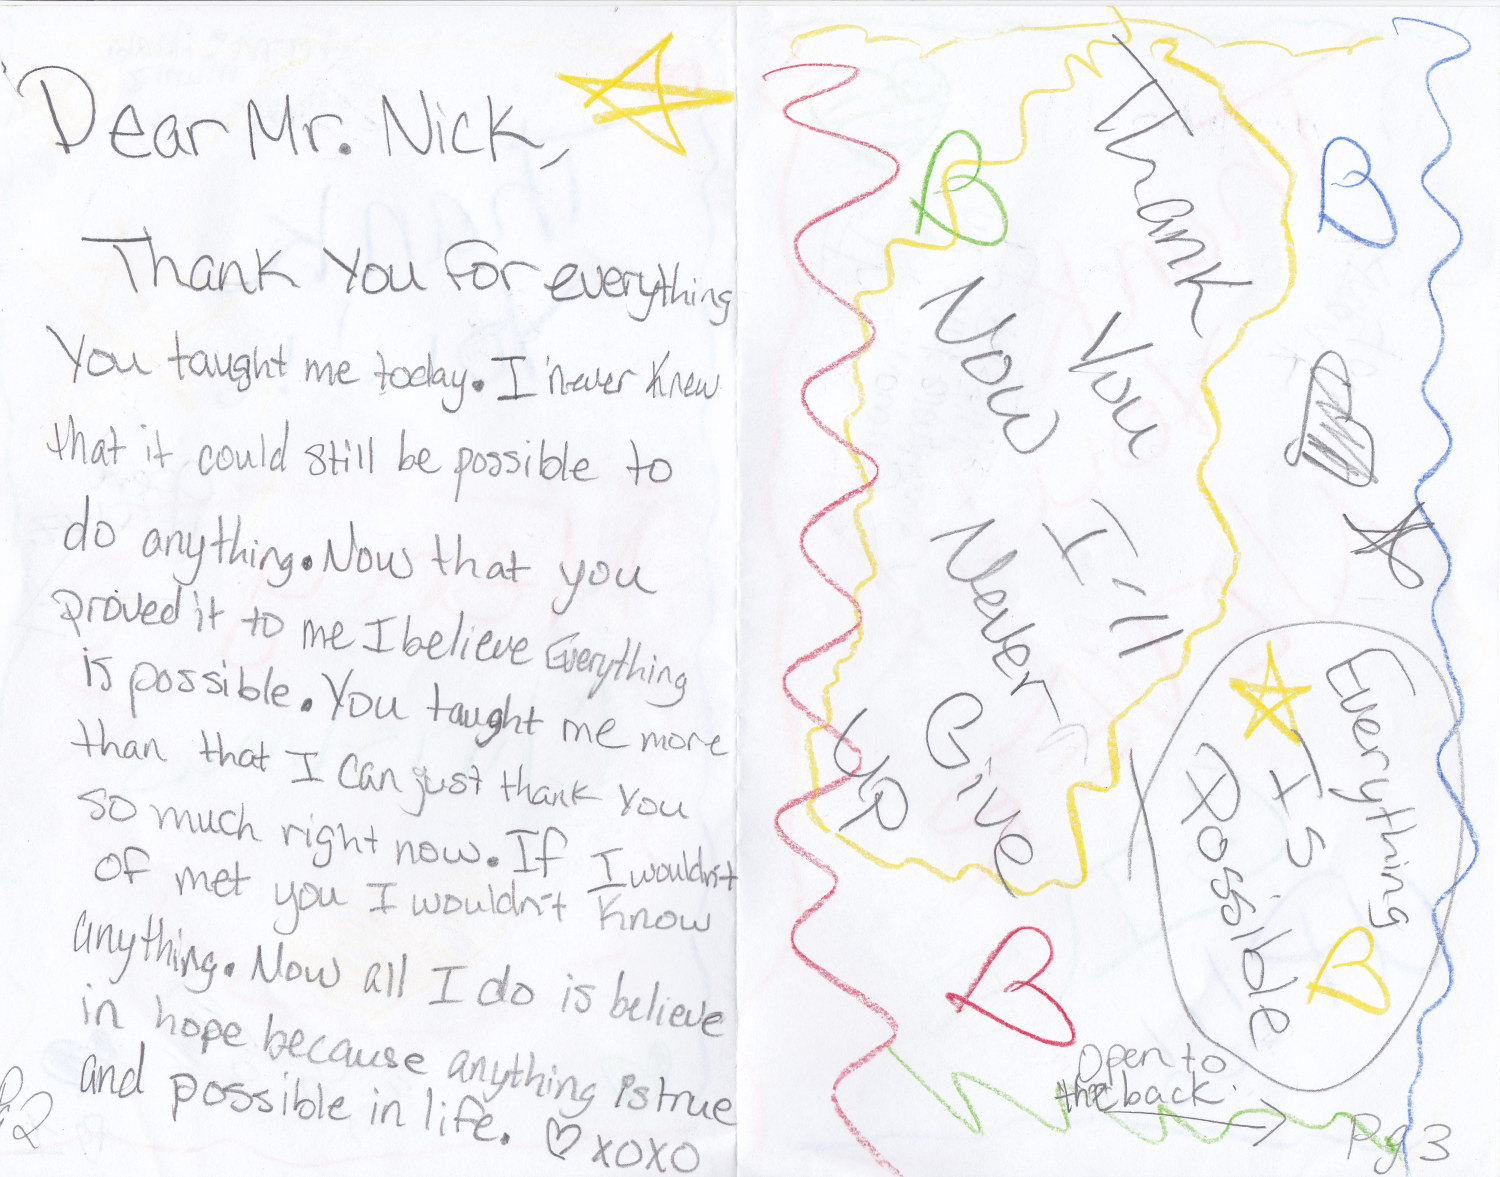 Dear Mr. Nick,
Thank You for everything
You taught me today. I never knew
that it could still be possible to
do anything. Now that you
proved it to me I believe Everything
is possible. You taught me more
than that I can just thank you
so much right now. If I wouldn't
of met you I wouldn't know
anything. Now all I do is believe
in hope because anything is true
and possible in life. ♡ xoxo
Pg2
Thank
You
Now
I'll
Never
Give
UP
Everything
Is
Possible
Open to
the back
Pg 3